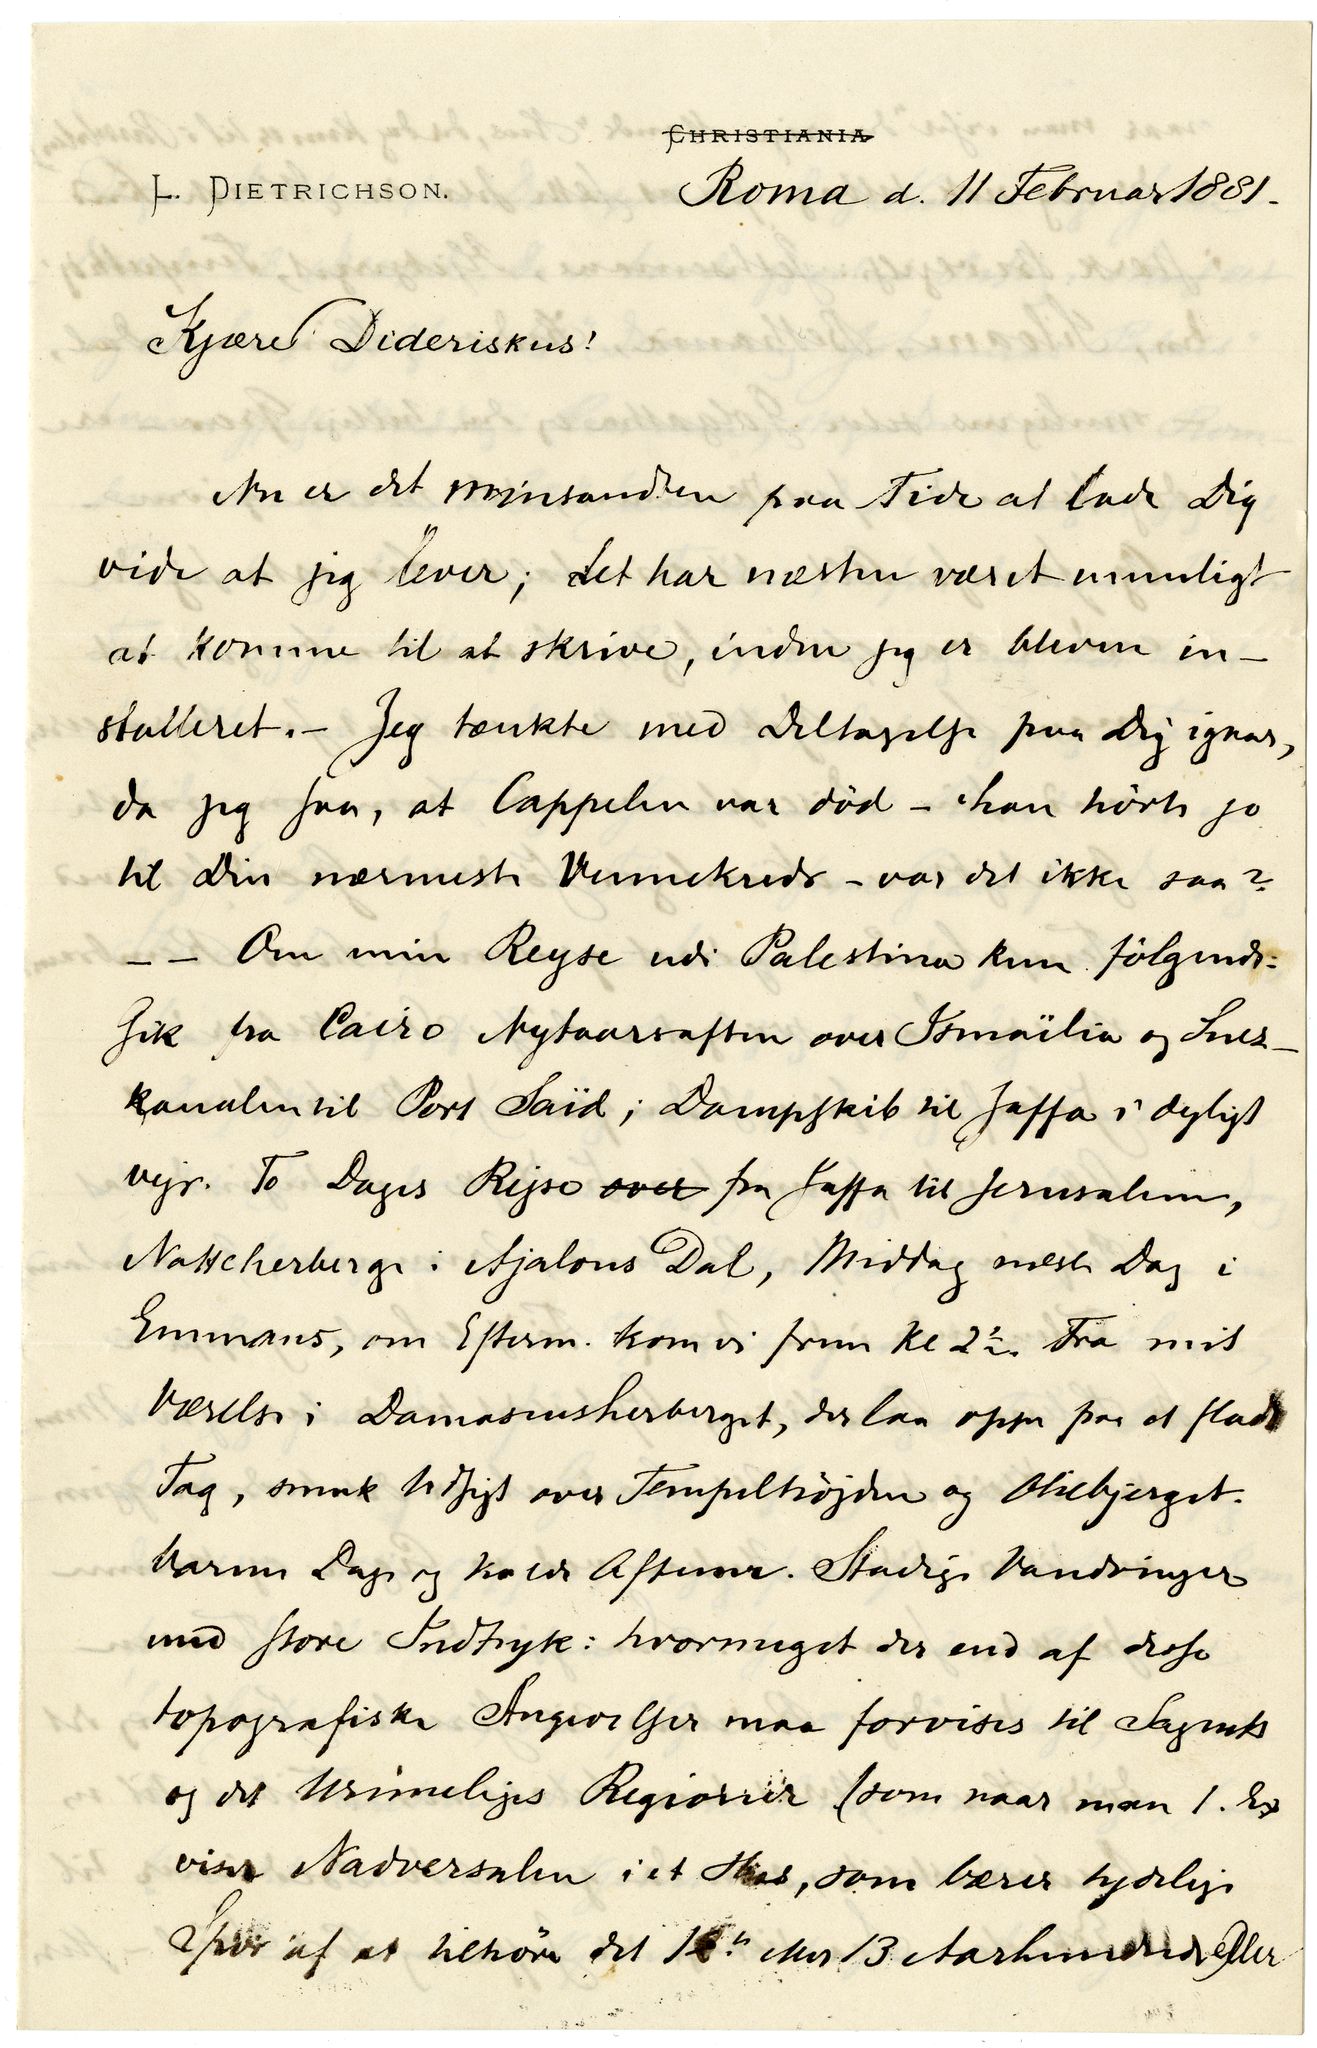 CHRISTIANIA
L. DIETRICHSON.
Roma d. 11 Februar 1881.
Kjære Dideriskus!
Nu er det minsandten paa Tide at lade Dig
vide at jeg lever; det har næsten været umuligt
at komme til at skrive, inden jeg er bleven in-
stalleret. - Jeg tænkte med Deltagelse paa Dig igaar,
da jeg saa, at Cappelen var död - han hörte jo
til Din nærmeste Vennekreds - var det ikke saa?
-- Om min Reyse udi Palestina kun fölgende:
Gik fra Cairo Nytaarsaften over Ismaïlia og Suez-
kanalen til Port Saïd; Dampskib til Jaffa i deyligt
vejr. To Dages Rejse over fra Jaffa til Jerusalem,
Nattcherberge i Ajalons Dal, Middag næste Dag i
Emmaus, om Efterm. kom vi frem Kl 2½. Fra mit
Værelse i Damascusherberget, der laa oppe paa et fladt
Tag, smuk Udsigt over Tempelhöjden og Oliebjerget.
Varme Dage og kolde Aftener. Stadige Vandringer
med store Indtryk: hvormeget der end af disse
topografiske Angivelser maa forvises til Sagnets
og det Urimeliges Regioner (som naar man t. Ex
viser Nadversalen i et Hus, som bærer tydelige
Spor af at tilhöre det 12te eller 13 Aarhundrede, eller